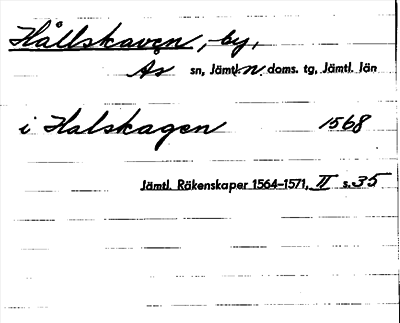 Hållskaven, by,
Ås sn, Jämtl. n. doms. tg, Jämtl. län
i Halskagen 1568
Jämtl. Räkenskaper 1564-1571, II s. 35